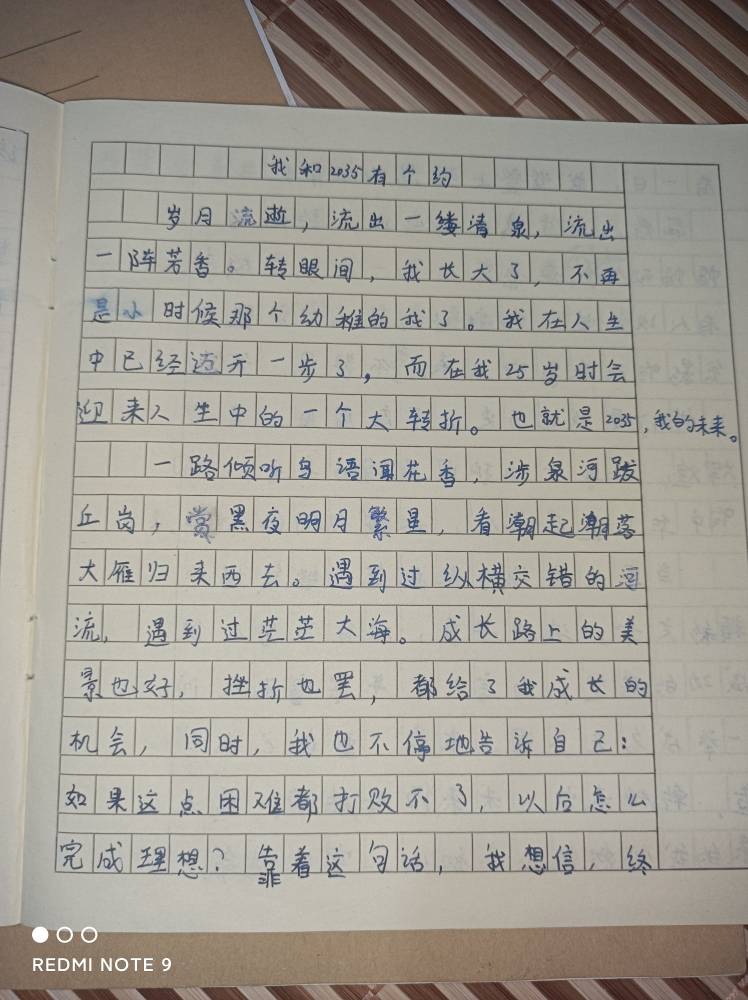 我和2035有个约
岁月流逝，流出一缕清泉，流出
一阵芳香。转眼间，我长大了，不再
是小时候那个幼稚的我了。我在人生
中已经迈开一步了，而在我25岁时会
迎来人生中的一个大转折。也就是2035，我的未来。
一路倾听鸟语闻花香，涉泉河跋
丘岗，赏黑夜明月繁星，看潮起潮落
大雁归来西去。遇到过纵横交错的河
流，遇到过茫茫大海。成长路上的美
景也好，挫折也罢，都给了我成长的
机会，同时，我也不停地告诉自己：
如果这点困难都打败不了，以后怎么
完成理想？靠着这句话，我想信，终
REDMI NOTE 9